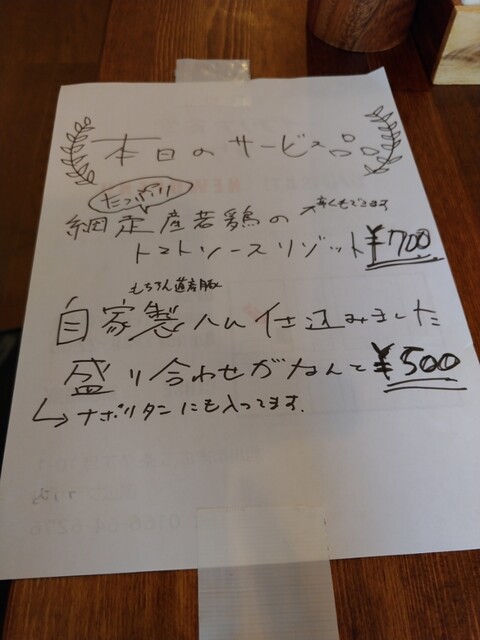 本日のサービス品
たっぷり
網走産若鶏の ※辛くもできます
トマトソースリゾット ¥700
もちろん道産豚
自家製ハム仕込みました
盛り合わせがなんと ¥500
↳ ナポリタンにも入ってます.